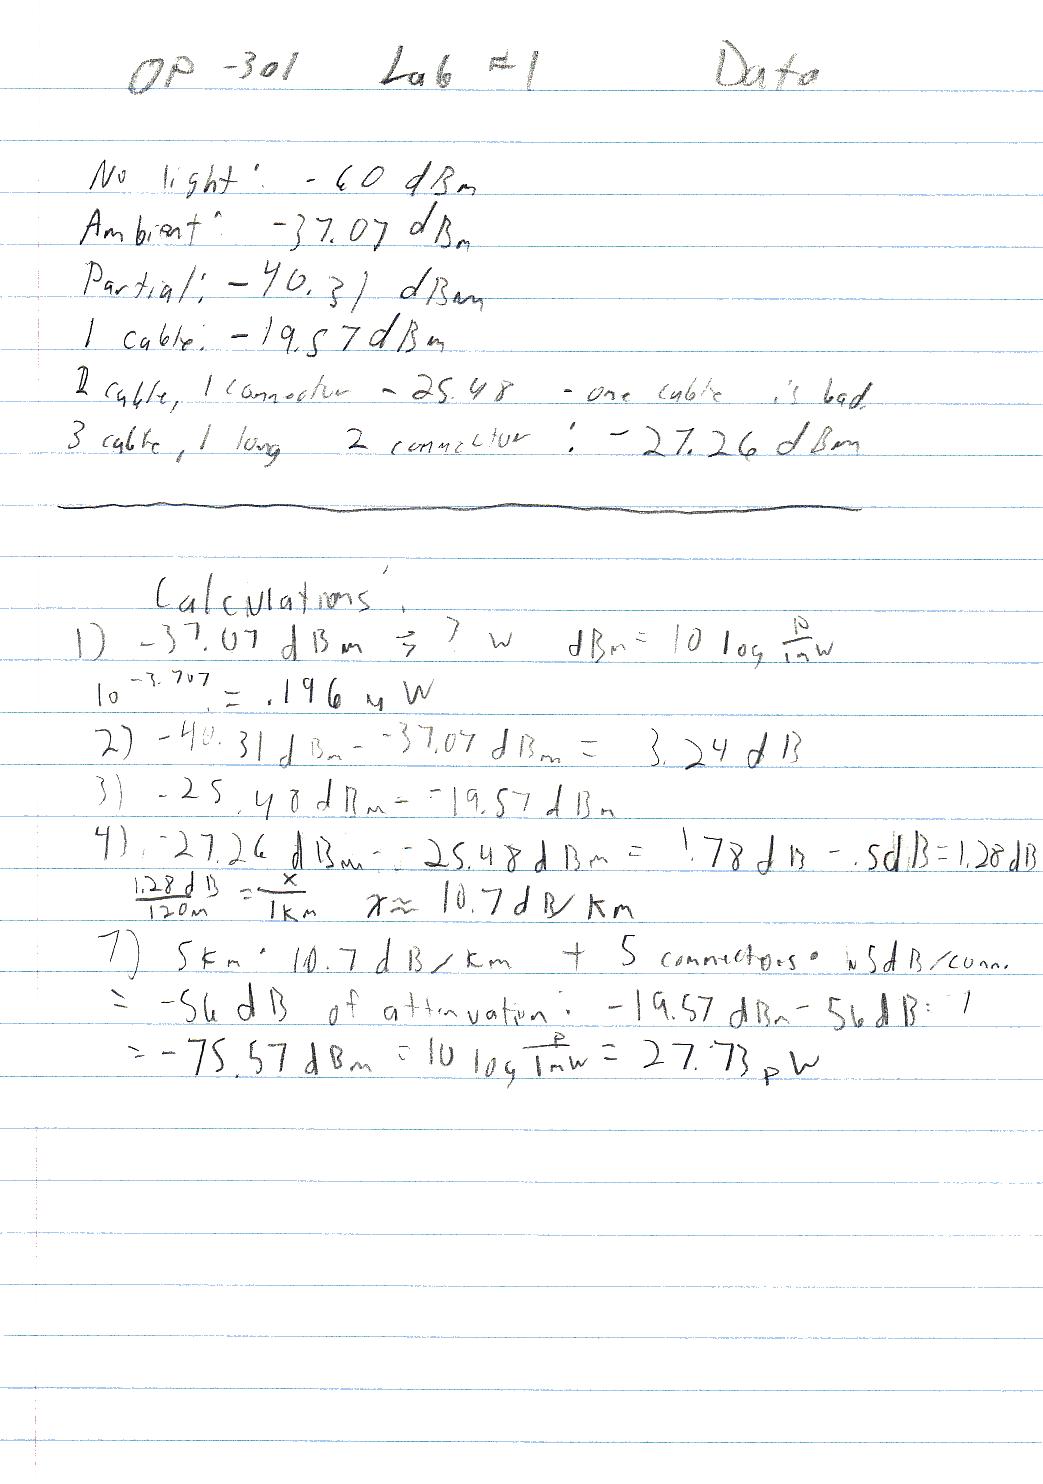 OP -301 Lab #1 Data
No light: -60 dBm
Ambient: -37.07 dBm
Partial: -40.31 dBm
1 cable: -19.57 dBm
2 cable, 1 connector -25.48 - one cable is bad
3 cable, 1 long 2 connector : -27.26 dBm
Calculations:
1) -37.07 dBm = ? W dBm = 10 log P/1mW
10^-3.707 = .196 μW
2) -40.31 dBm - -37.07 dBm = 3.24 dB
3) -25.48 dBm - -19.57 dBm
4) -27.26 dBm - -25.48 dBm = 1.78 dB - .5dB = 1.28 dB
1.28 dB/120m = x/1km x ≈ 10.7 dB/km
7) 5 km · 10.7 dB/km + 5 connectors · .5dB/conn.
= -56 dB of attenuation: -19.57 dBm - 56 dB = ?
= -75.57 dBm = 10 log P/1mW = 27.73 pW